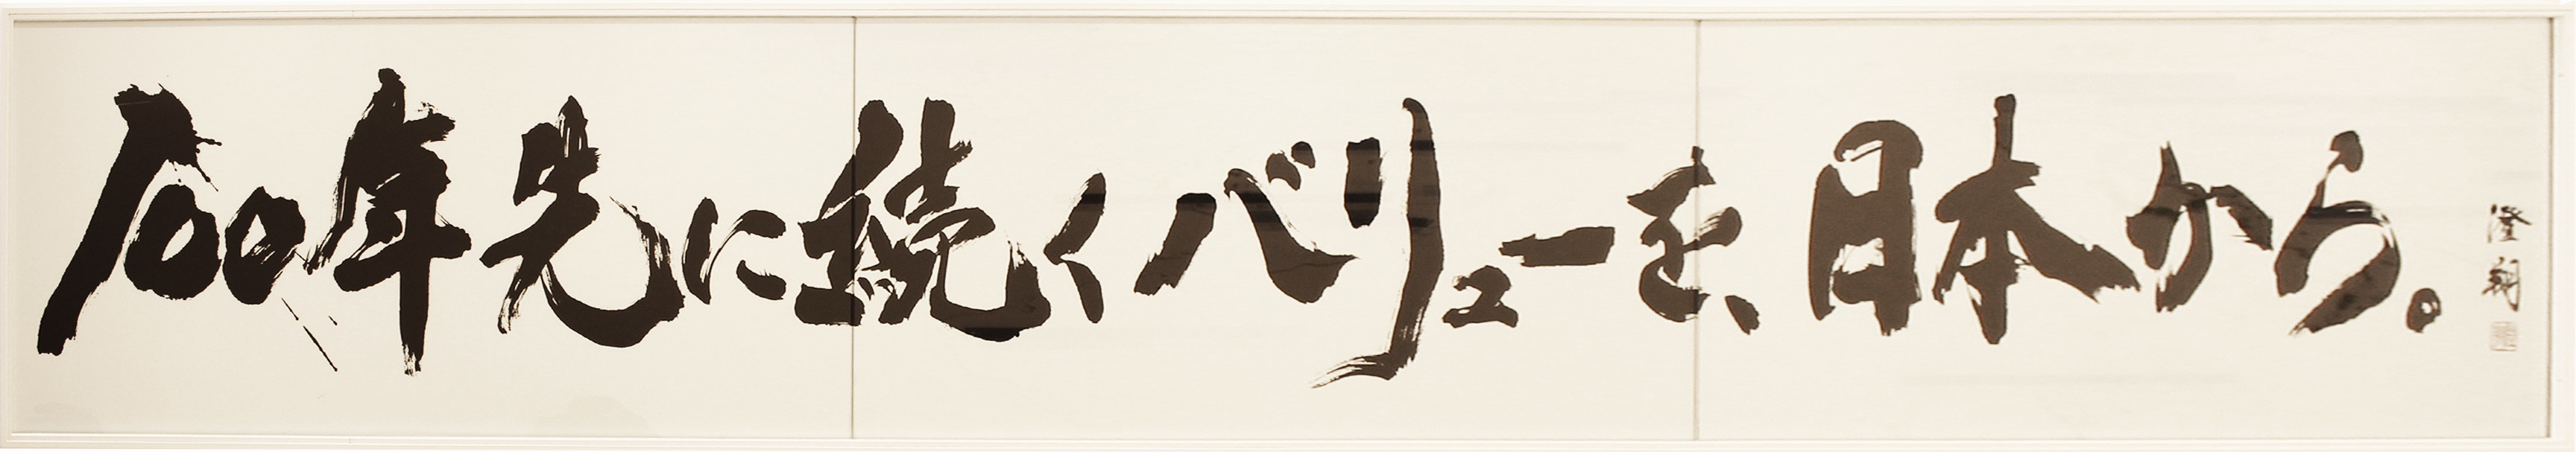 100年先に続くバリューを、日本から。
澄翔